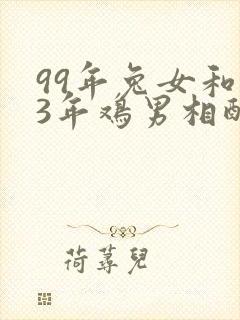 99年兔女和
3年鸡男相配
荷荨儿